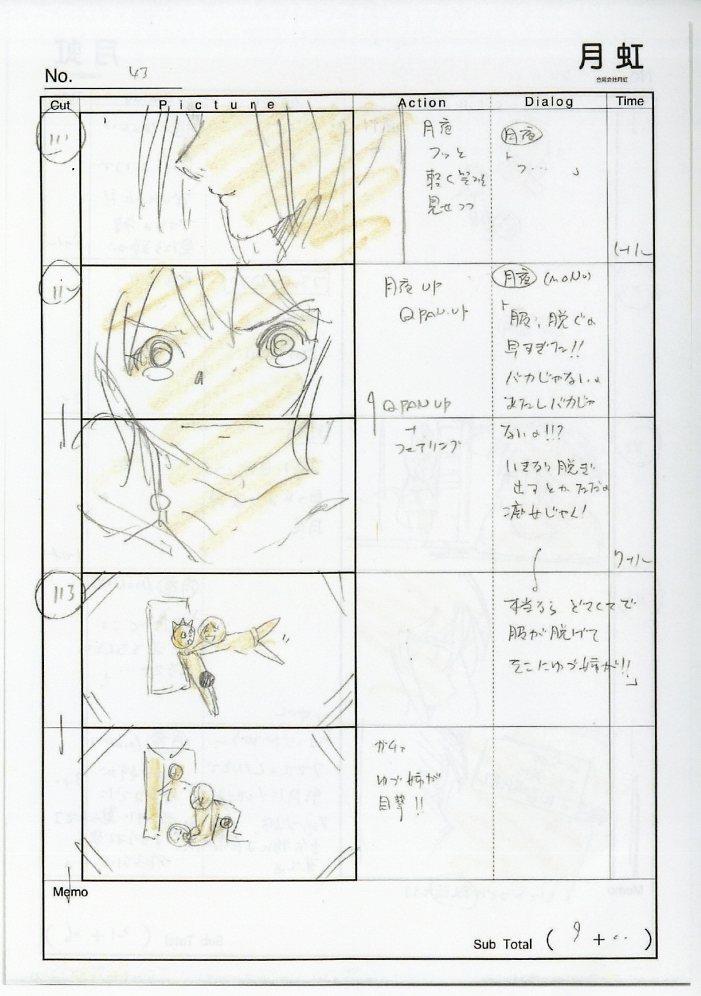 月虹
合同会社月虹
No. 43
Cut Picture Action Dialog Time
111
月夜
フッと
軽く笑みを
見せつつ
月夜
「フ…」
112
月夜 UP
Q PAN.UP
Q PAN UP
+
フェアリング
月夜 (MONO)
「服、脱ぐの
早すぎた!!
バカじゃないの
あたしバカじゃ
ないの!!?
いきなり脱ぎ
出すとかただの
痴女じゃん!
113
本当なら どてくてで
服が脱げて
そこにゆづ姉が!!」
ガチャ
ゆづ姉が
目撃!!
Memo
Sub Total ( 9 + )